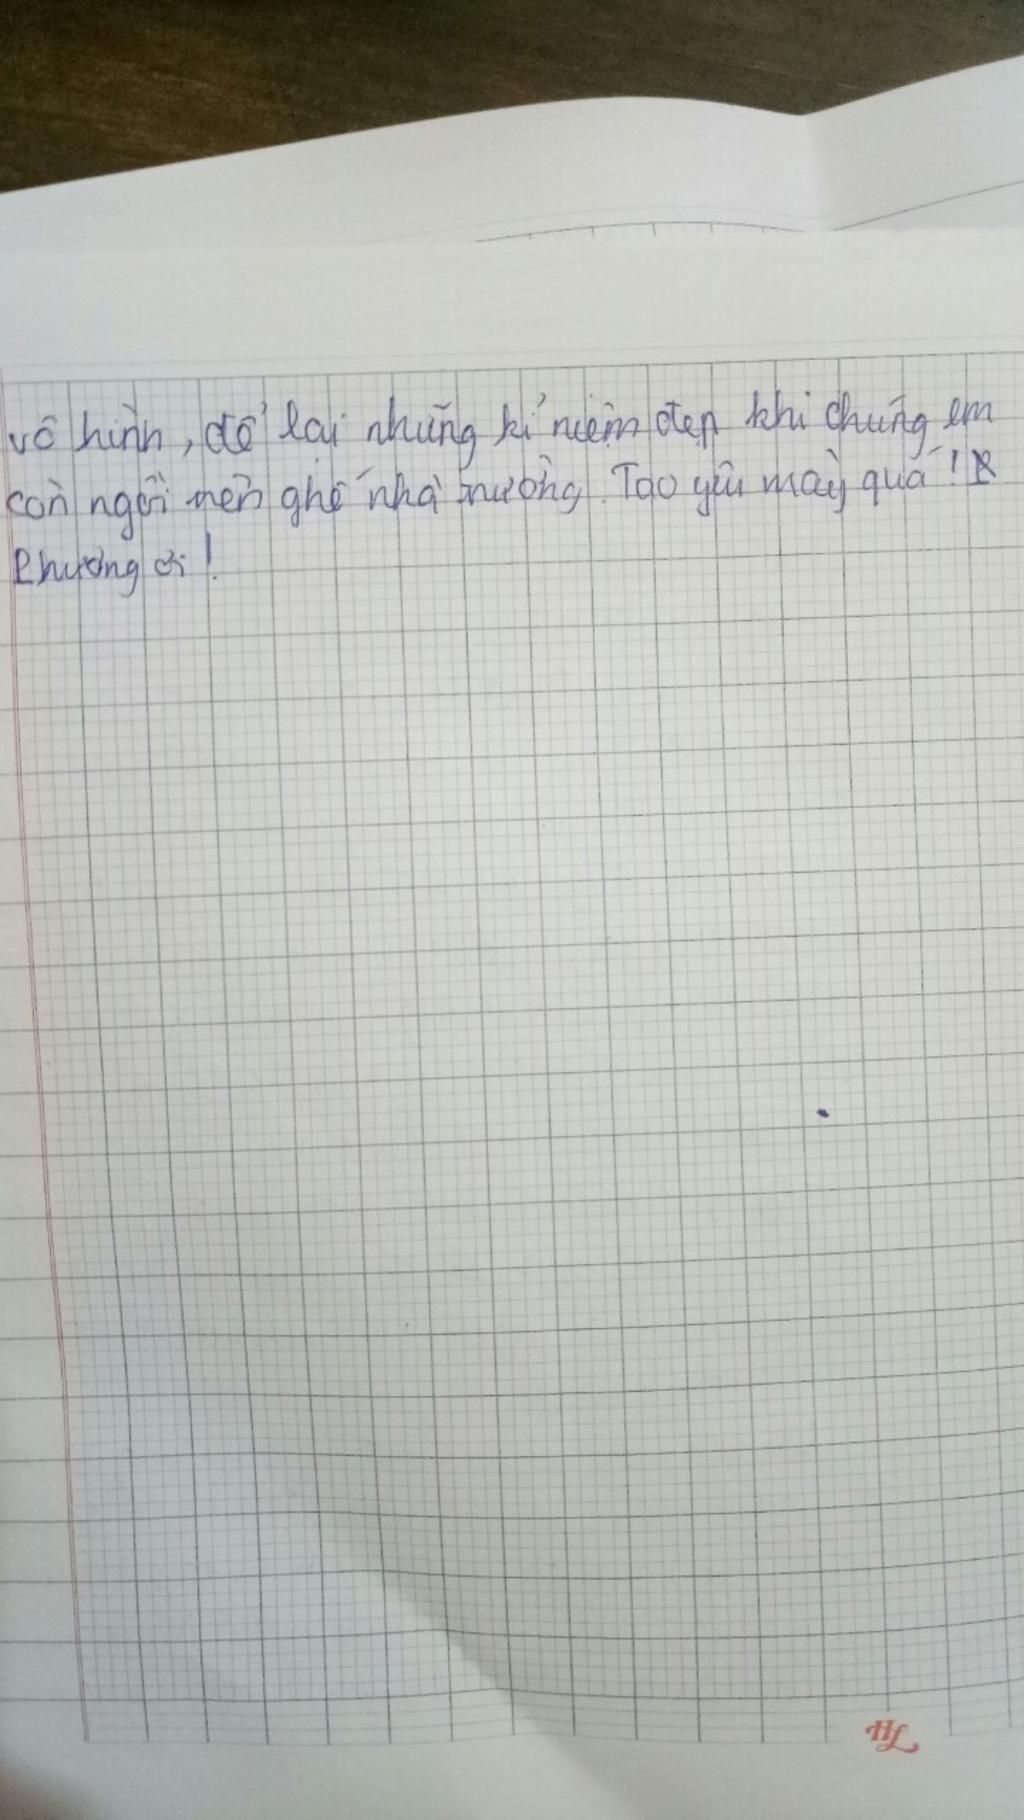 vô hình, để lại những kỉ niệm đẹp khi chúng em
còn ngồi trên ghế nhà trường. Tao yêu mày quá!
Phương ơi!
HL